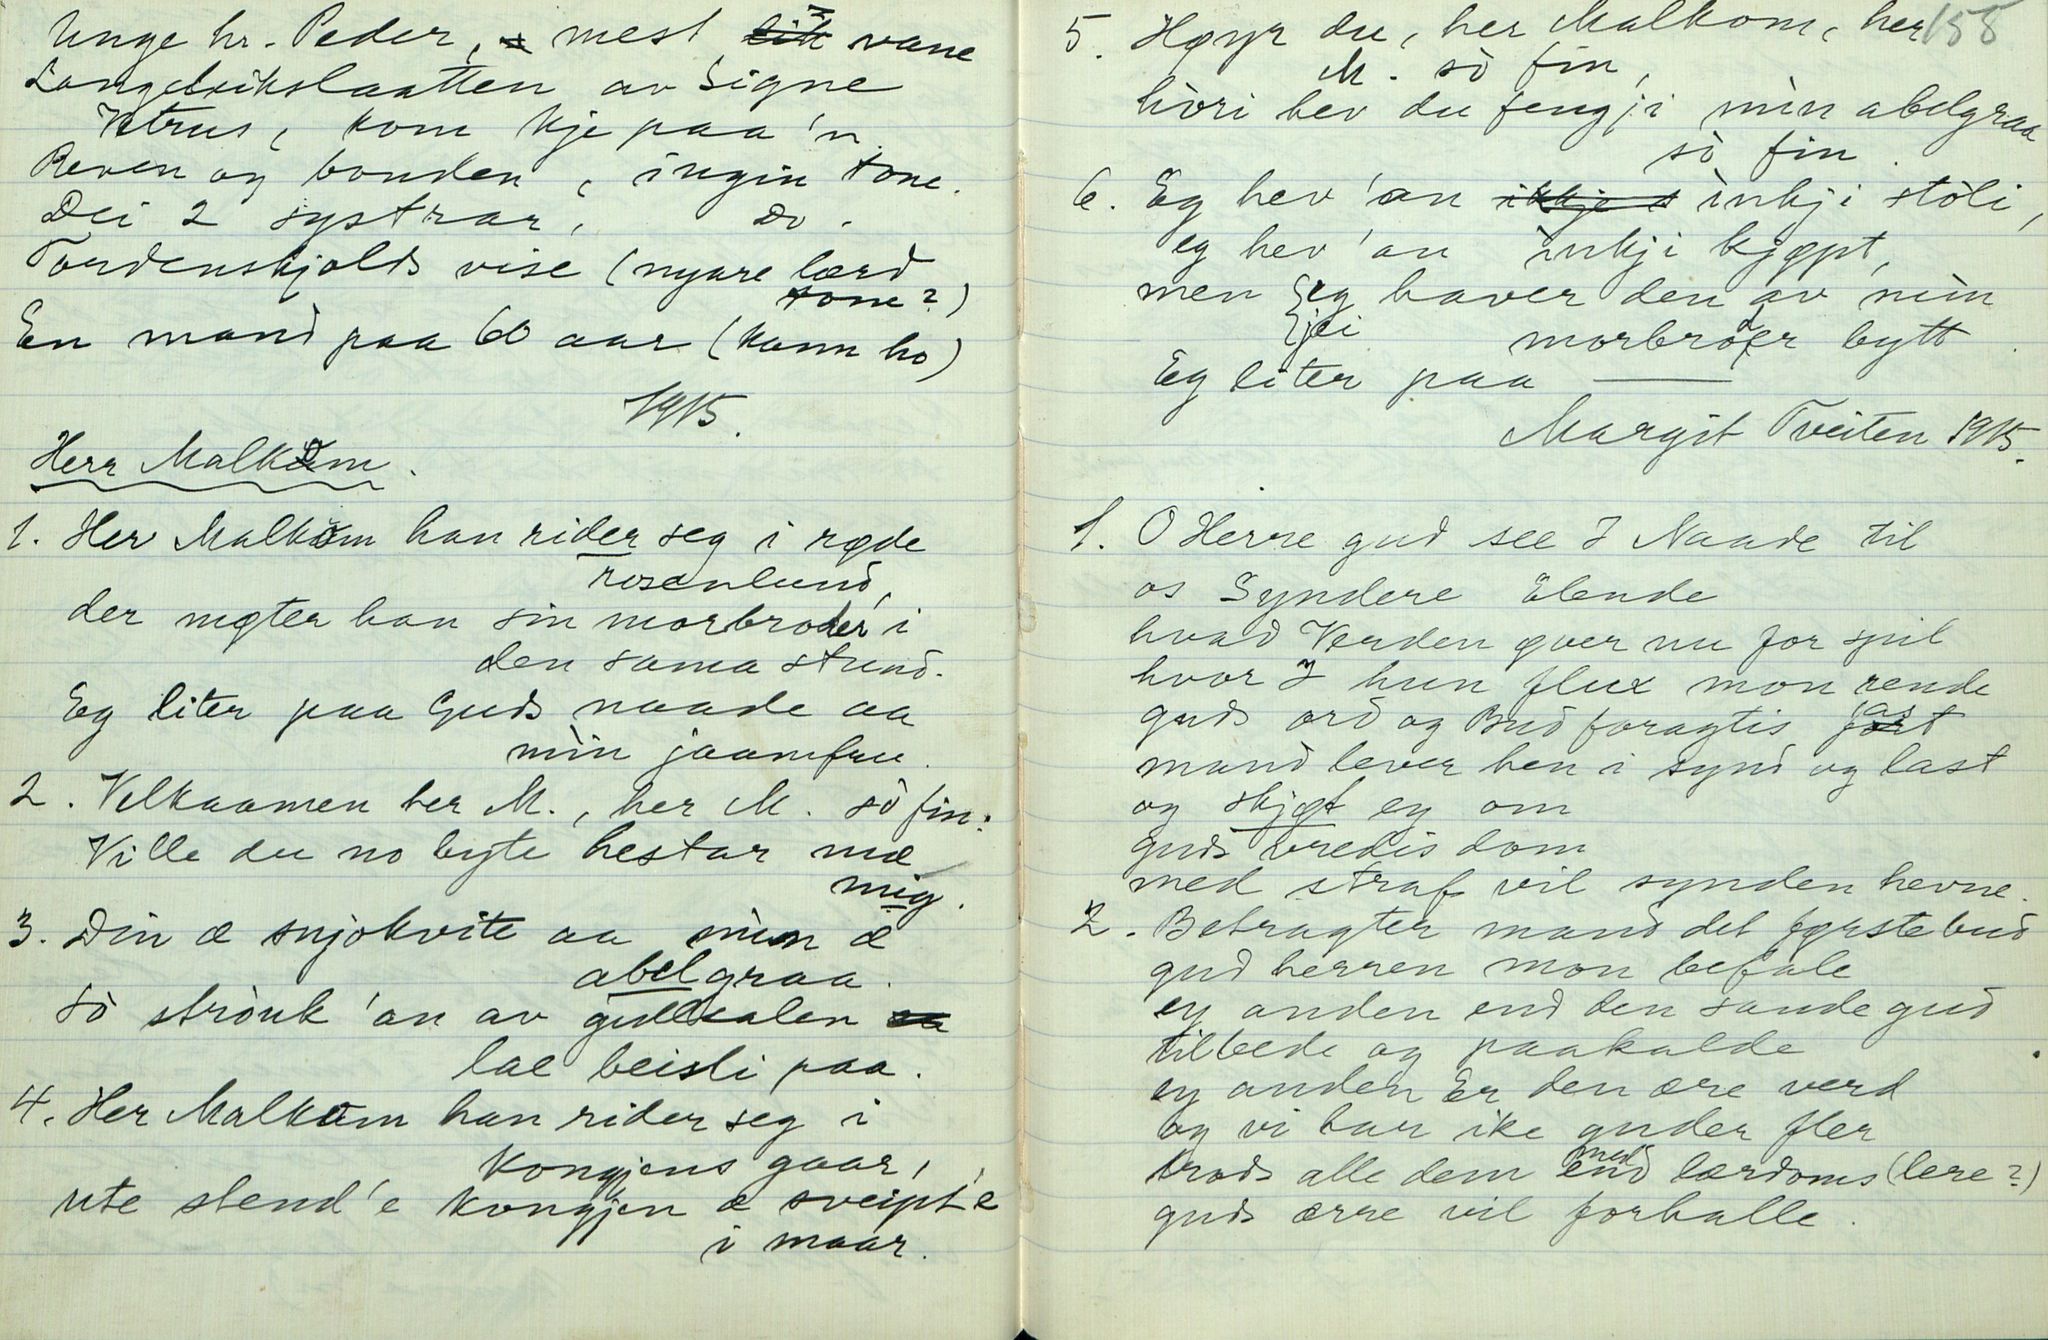 Unge hr. Peder, mest vane
Langeleikslaatten av Signe
Vetrus, kom kje paa 'n.
Reven og bonden, ingin tone.
Dei 2 systrar, Do.
Tordenskjolds vise (nyare lærd
tone?)
En mand paa 60 aar (kann ho)
1915.
Herr Malkom.
1. Her Malkom han rider seg i røde
rosenlund,
der møter han sin morbroder i
den sama stund.
Eg liter paa Guds naade aa
min jaamfru.
2. Velkaamen her M., her M. sò fin:
Ville du no byte hestar mæ
mig.
3. Din æ snjokvite aa min æ
abelgraa.
sò strouk 'an av gullsalen
lae beisli paa.
4. Her Malkom han rider seg i
kongjens gaar,
ute stend'e kongjen æ sveipt'e
i maar.
158
5. Høyr du, her Malkom, her
M. sò fin,
hòri hev du fengji min abelgraa
sò fin.
6. Eg hev 'an ikkje inkji stòli,
eg hev 'an inkji kjøpt,
men eg haver den av min
jei morbroder bytt.
Eg liter paa ———
Margit Tveiten 1915.
1. O Herre gud see I Naade til
os Syndere Elende
hvad Verden øver nu for spil
hvor I hun flux mon rende
guds ord og Bud foragtis fast
mand lever hen i synd og last
og skjøt ey om
guds vredis dom
med straf vil synden hevne.
2. Betragter mand det første bud
gud herren mon befale
ey anden end den sande gud
tilbede og paakalde
ey anden Er den ære verd
og vi har ike guder fler
trods alle dem end med lærdoms (lere?)
guds ærre vil forhalle.